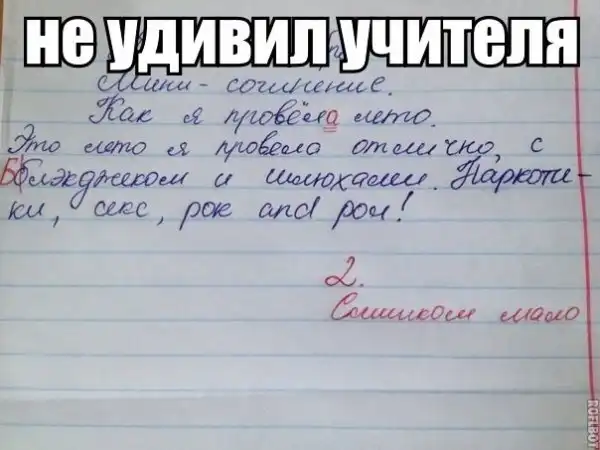 не удивил учителя
Мини - сочинение.
Как я провёла лето.
Это лето я провела отлично, с
Блэкджеком и шлюхами. Наркоти-
ки, секс, рок and рол!
2.
Слишком мало
ROFLBOT